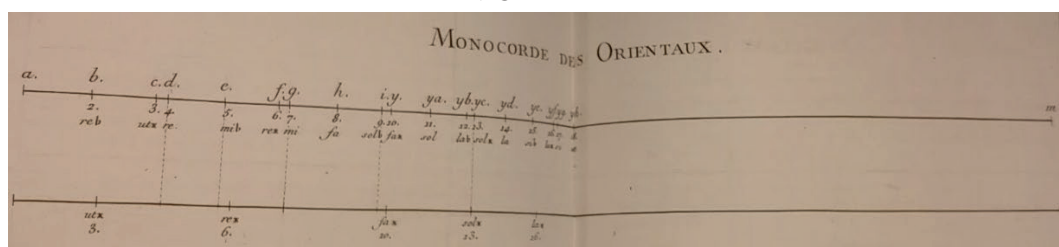 MONOCORDE DES ORIENTAUX.
a. b. c. d. e. f. g. h. i. y. ya. yb. yc. yd. ye. yf. yg. yh. m
2. 3. 4. 5. 6. 7. 8. 9. 10. 11. 12. 13. 14. 15. 16. 17.
reb utx re. mib rex mi fa solb fax sol lab solx la sib lax
utx rex fax solx lax
3. 6. 10. 13. 16.